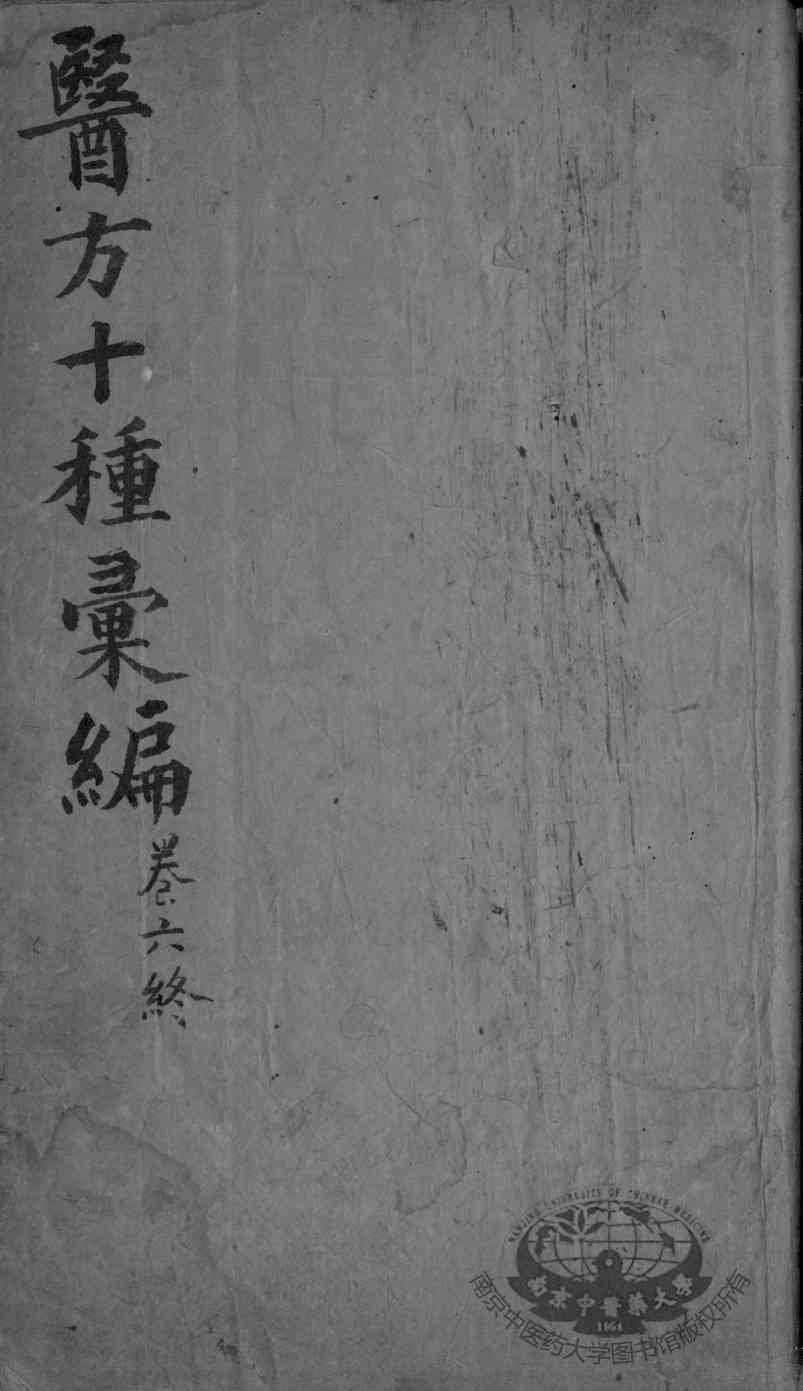 醫方十種彙編
卷六終
NANJING UNIVERSITY OF CHINESE MEDICINE
南京中醫藥大學
1954
南京中医药大学图书馆版权所有